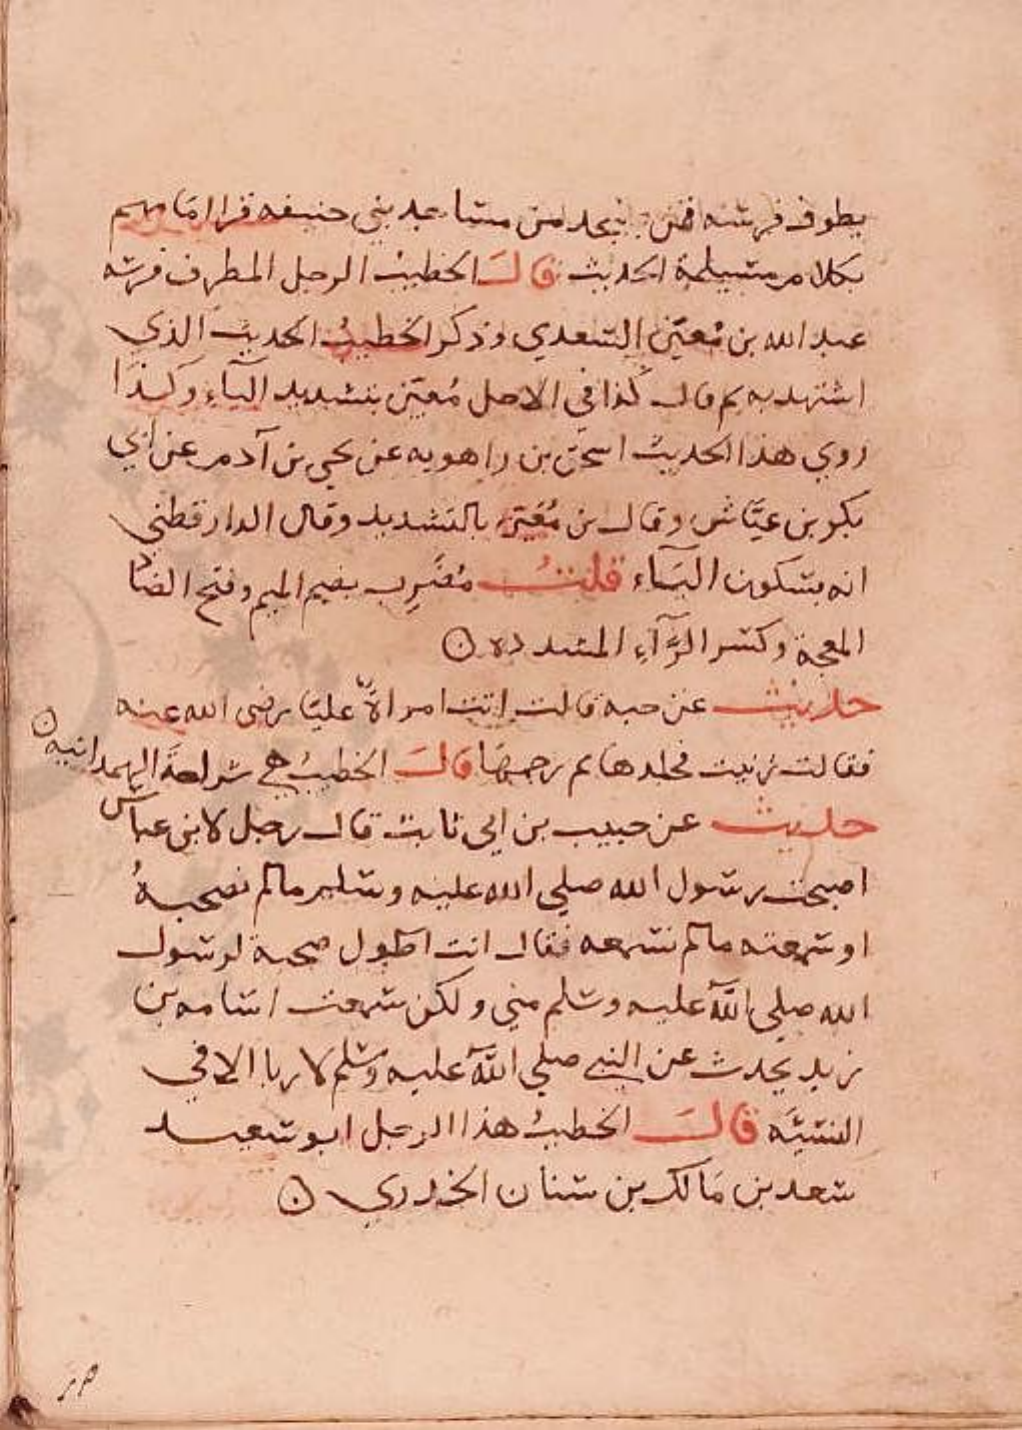 يطوف فرسه فمر بمسجد من مساجد بني حنيفه قرا امامهم
بكلام مسيلمة الحديث قالَ الخطيبُ الرجل المطرف فرسه
عبد الله بن مُعيّن السعدي وذكر الخطيبُ الحديث الذي
استشهد به ثم قال كذا في الاصل مُعيّن بتشديد اليآءِ وكذا
روي هذا الحديث اسحق بن راهويه عن يحيي بن آدم عن ابي
بكر بن عيَّاش وقال بن مُعَيّن بالتشديد وقال الدارقطني
انه بسكون اليَآء قلتُ مُضَرِب بضم الميم وفتح الضاد
المعجمة وكسر الرَّآءِ المشدده
حديث عن حبه قالت اتت امراةٌ عليّا رضي الله عنه
فقالت زنيت فجلدها ثم رجمهَا قالَ الخطيبُ هي شراحةَ الهمدانيه
حديث عن حبيب بن ابي ثابت قال رجل لابن عباس
اصبحت رسول الله صلي الله عليه وسلم ما لم نصحبهُ
او سمعته ما لم نسمعه فقال انت اطول صحبة لرسول
الله صلي اللّه عليه وسلم مني ولكن سمعت اسامه بن
زيد يحدث عن النبي صلي اللّه عليه وسلم لا ربا الا في
النسيَّه قالَ الخطيبُ هذا الرجل ابو سعيد
سعد بن مَالك بن سنان الخدري